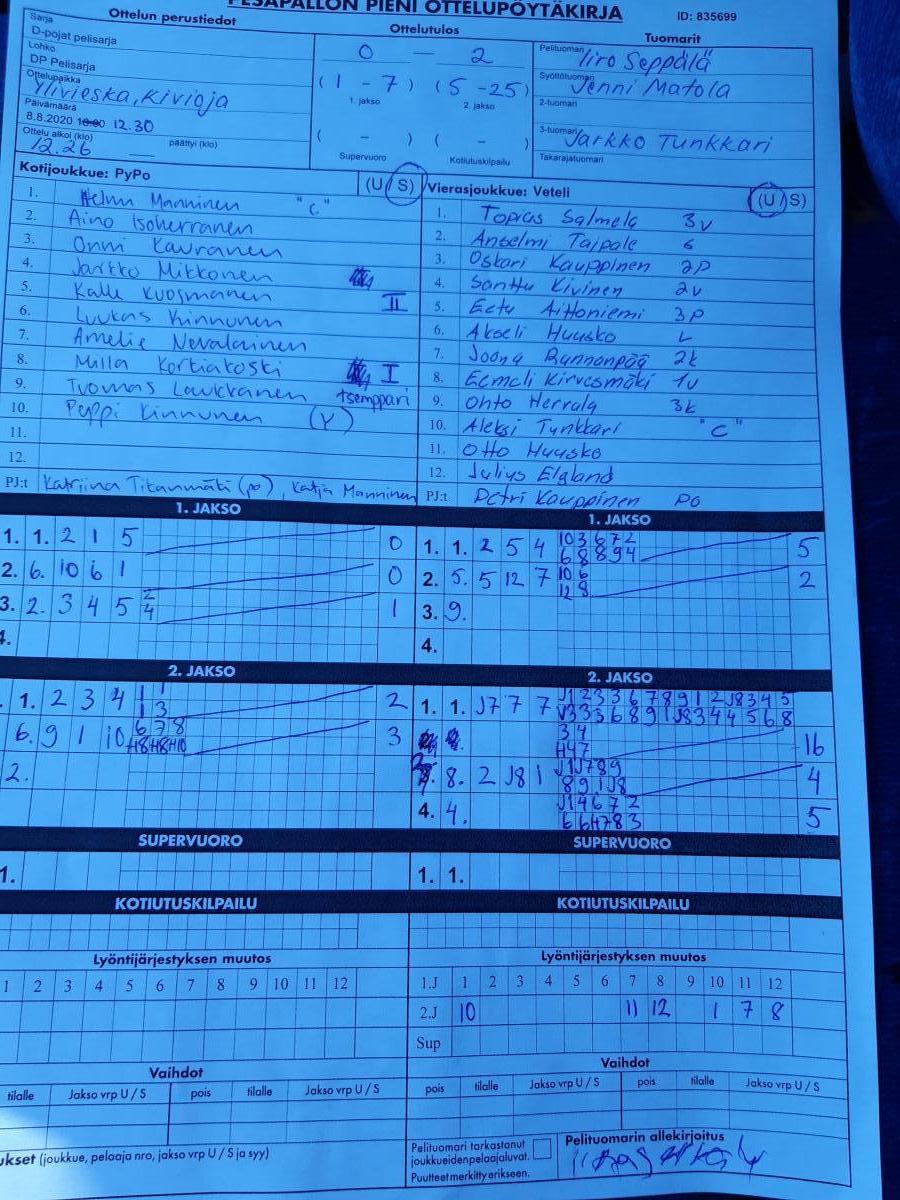 PESÄPALLON PIENI OTTELUPÖYTÄKIRJA
ID: 835699
Ottelun perustiedot
Ottelutulos
Tuomarit
Sarja
D-pojat pelisarja
Lohko
DP Pelisarja
Ottelupaikka
Ylivieska, Kivioja
Päivämäärä
8.8.2020 12.30
Ottelu alkoi (klo)
12.26
päättyi (klo)
0 — 2
(1 - 7) (5 - 25)
1. jakso 2. jakso
( - ) ( - )
Supervuoro Kotiutuskilpailu
Pelituomari
Iiro Seppälä
Syöttötuomari
Jenni Matola
2-tuomari
3-tuomari
Jarkko Tunkkari
Takarajatuomari
Kotijoukkue: PyPo (U/S)
1. Manninen "C"
2. Aino Isoherranen
3. Onni Kauranen
4. Jarkko Mikkonen
5. Kalle Kuosmanen II
6. Luukas Kinnunen
7. Amelie Nevalainen
8. Milla Kortiakoski I
9. Tuomas Laukkanen tsemppari
10. Peppi Kinnunen (Y)
11.
12.
PJ:t Katriina Titanmäti (po), Katja Manninen
Vierasjoukkue: Veteli (U/S)
1. Topias Salmela 3v
2. Anselmi Taipale s
3. Oskari Kauppinen 2p
4. Santtu Kivinen 2v
5. Eetu Aittoniemi 3p
6. Akseli Huusko L
7. Joona Rannanpää 2k
8. Eemeli Kirvesmäki 1v
9. Ohto Herrala 3k
10. Aleksi Tunkkari "C"
11. Otto Huusko
12. Julius Elgland
PJ:t Petri Kauppinen PO
1. JAKSO
1. 1. 2 1 5 0
2. 6. 10 6 1 0
3. 2. 3 4 5 2 4 1
4.
1. JAKSO
1. 1. 2 5 4 10 3 6 7 2 5
6 8 8 9 4
2. 5. 5 12 7 10 6 2
12 8
3. 9.
4.
2. JAKSO
1. 2 3 4 1 1 2
1 3
6. 9 1 10 6 7 8 3
H8 H8 H10
2.
2. JAKSO
1. 1. J7 7 7 J1 2 3 3 6 7 8 9 1 2 J8 3 4 5
V3 3 3 6 8 9 1 J8 3 4 4 5 6 8
3 4 16
H4 7
8. 2 J8 1 J1 J7 8 9 4
8 9 1 J8
4. 4. J1 4 6 7 2 5
6 6 H7 8 3
SUPERVUORO
1.
SUPERVUORO
1. 1.
KOTIUTUSKILPAILU
KOTIUTUSKILPAILU
Lyöntijärjestyksen muutos
1 2 3 4 5 6 7 8 9 10 11 12
Lyöntijärjestyksen muutos
1.J 1 2 3 4 5 6 7 8 9 10 11 12
2.J 10 11 12 1 7 8
Sup
Vaihdot
tilalle Jakso vrp U / S pois tilalle Jakso vrp U / S
Vaihdot
pois tilalle Jakso vrp U / S pois tilalle Jakso vrp U / S
ukset (joukkue, pelaaja nro, jakso vrp U / S ja syy)
Pelituomari tarkastanut
joukkueidenpelaajaluvat.
Puutteet merkitty erikseen.
Pelituomarin allekirjoitus